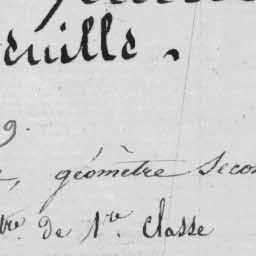 euille.
9.
, géomètre Secon
tre. de 1re. Classe